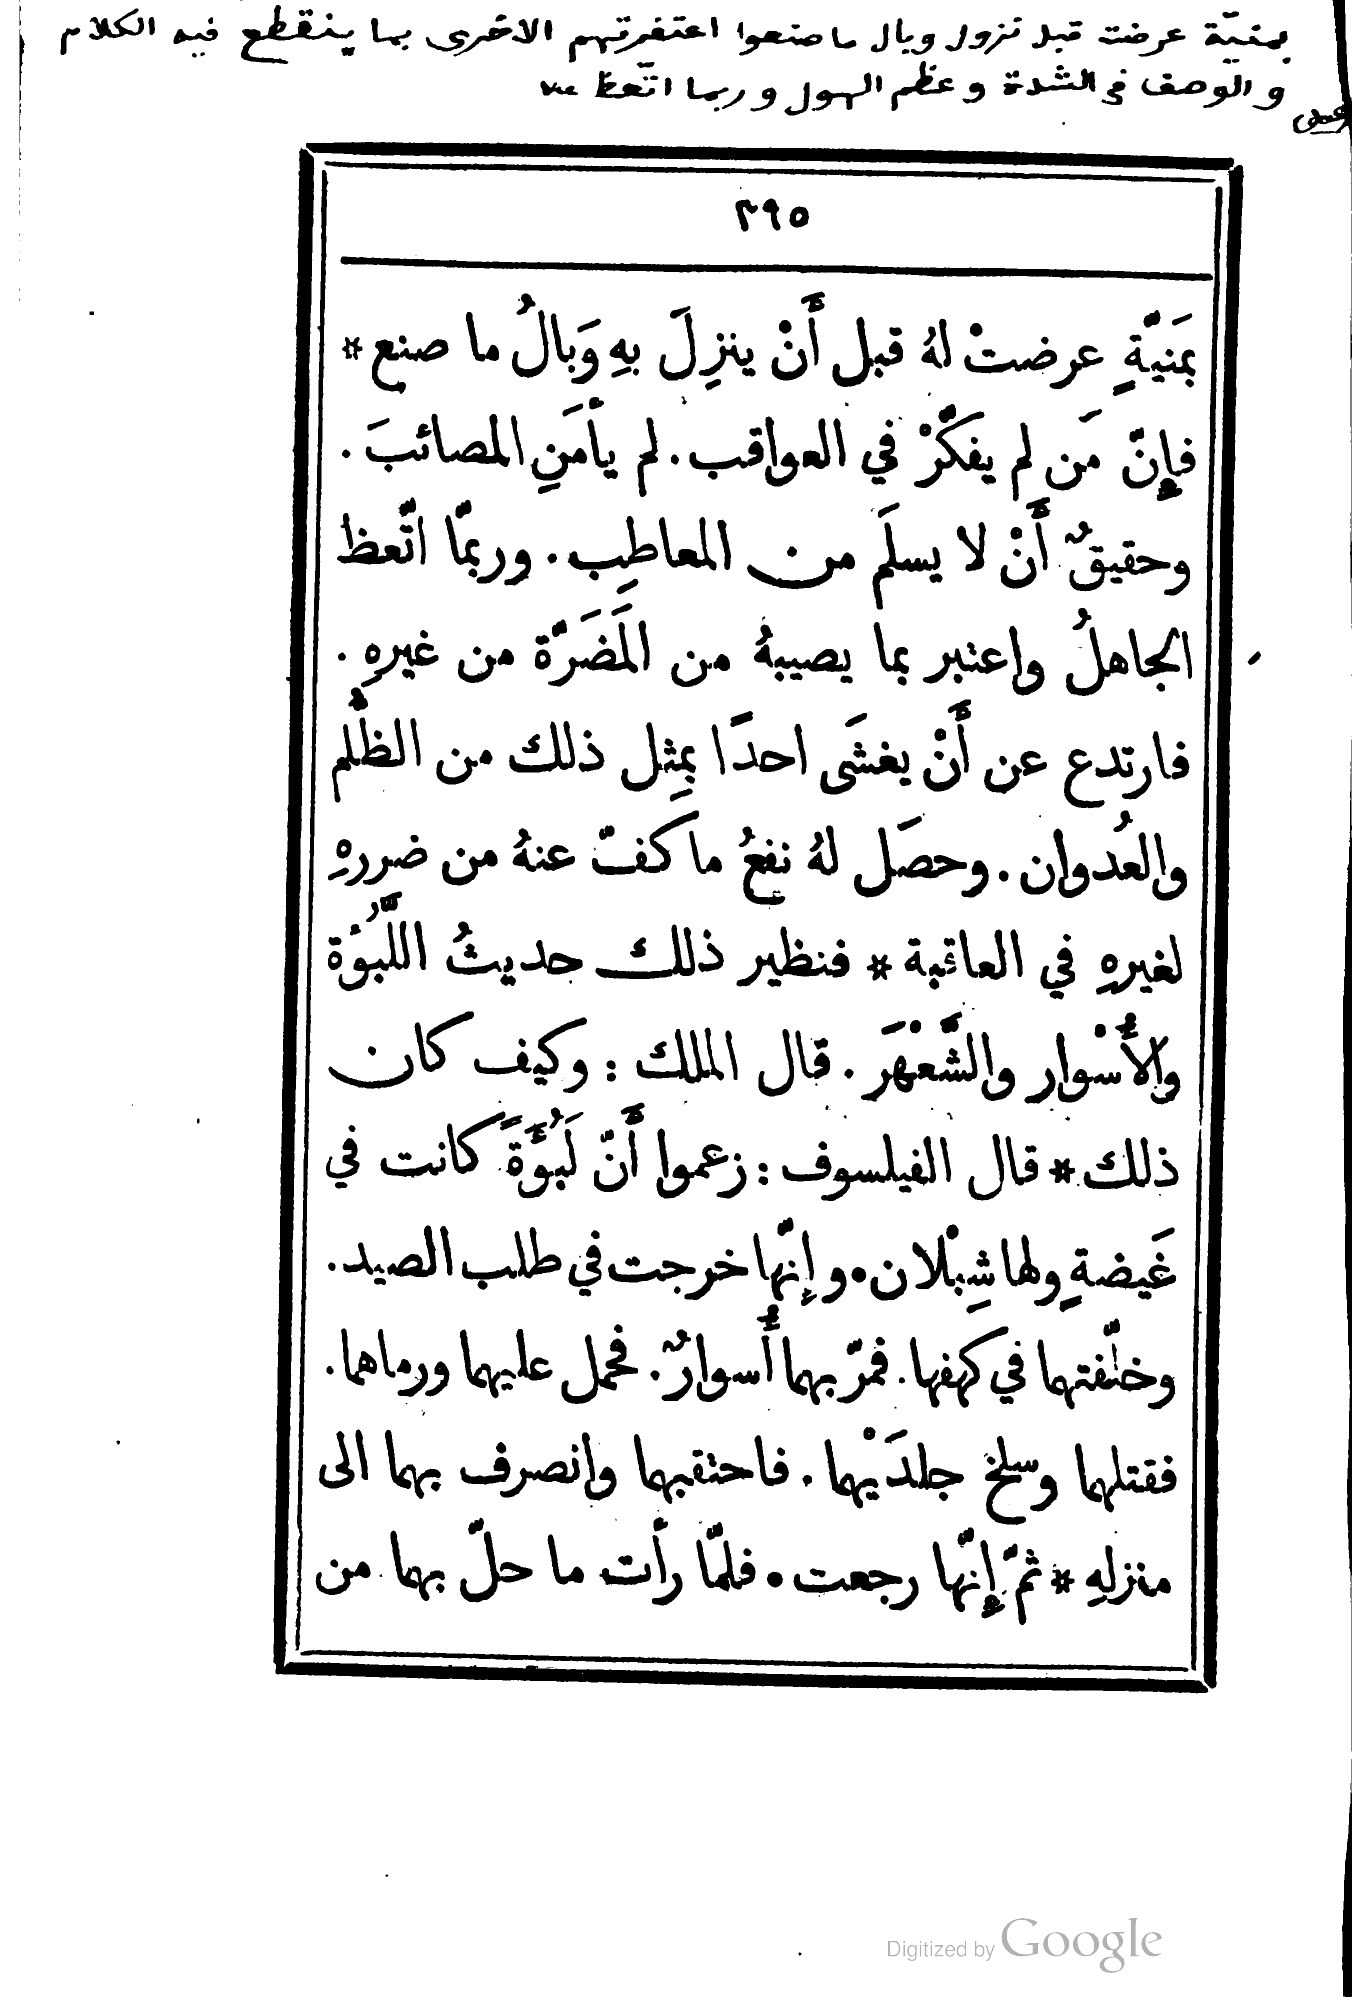 بمنيّة عرضت قبل نزول وبال ما صنعوا اعتفرتهم الاخرى بما ينقطع فيه الكلام
والوصف في الشدة وعظم الهول وربما اتّعظ
٢٩٥
بمَنيّةٍ عرضتْ لهُ قبل أَنْ ينزِلَ بهِ وَبالُ ما صنع *
فإِنَّ مَن لم يفكّرْ في العواقب. لم يأمَنِ المصائبَ.
وحقيقٌ أَنْ لا يسلَم من المعاطِب. وربمّا اتّعظ
الجاهلُ واعتبر بما يصيبهُ من المَضَرَّة من غيرهِ.
فارتدع عن أَنْ يغشَى احدًا بمِثل ذلك من الظُلم
والعُدوان. وحصَل لهُ نفعُ ما كفّ عنهُ من ضررهِ
لغيرهِ في العاقبة * فنظير ذلك حديثُ اللَّبُوَّة
والأُسْوار والشَّعْهَر. قال الملك : وكيف كان
ذلك * قال الفيلسوف : زعموا أَنّ لَبُوَّةً كانت في
غَيضةٍ ولها شِبْلان. وإِنّها خرجت في طلب الصيد.
وخلّفتهما في كهفها. فمرّ بهما أُسوارٌ. فحمل عليهما ورماهما.
فقتلهما وسلخ جلدَيْهما. فاحتقبهما وانصرف بهما الى
منزلهِ * ثمّ إِنّها رجعت. فلمّا رأَت ما حلّ بهما من
Digitized by Google